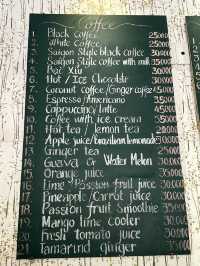 Coffee
1. Black coffee 25.000
2. White Coffee
3. Saigon Style black coffee 30.000
4. Saigon Style coffee with milk 35.000
5. Bạc Xỉu 30.000
6. Hot / Ice Chocolate 30.000
7. Coconut coffee/Ginger coffee 45.000
8. Espresso/Americano 35.000
9. Cappuccino/Latte 45.000
10. Coffee with ice cream 35.000
11. Hot tea / lemon tea
12. Apple juice/brazilian lemonade
13. Ginger tea
14. Guava Or Water Melon
15. Orange juice
16. Lime / Passion fruit juice 30.000
17. Pineapple/Carrot juice 30.000
18. Passion fruit Smoothie
19. Mango lime cooler
20. Fresh tomato juice 30.000
21. Tamarind ginger 35.000